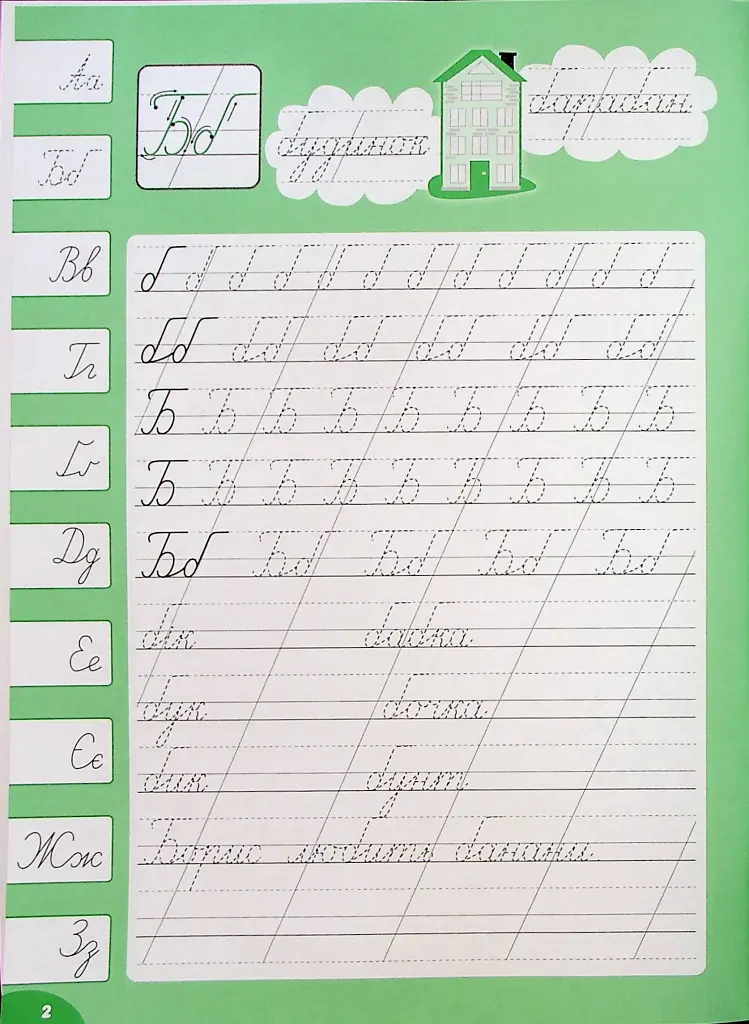 Аа
Бб
Вв
Гг
Ґґ
Дд
Ее
Єє
Жж
Зз
Бб
будинок
барабан
б б б б б б б б б б б б
бб бб бб бб бб бб
Б Б Б Б Б Б Б Б Б
Б Б Б Б Б Б Б Б Б
Бб Бб Бб Бб Бб
бік бабка
бук бочка
бик бунт
Борис любить банани
2